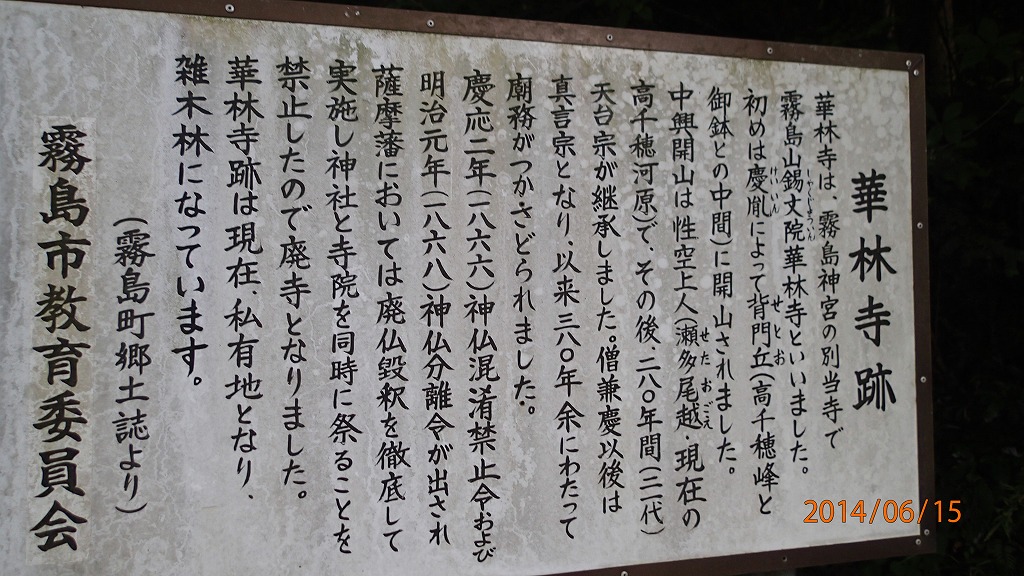 華林寺跡
華林寺は、霧島神宮の別当寺で
霧島山錫丈院華林寺といいました。
初めは慶胤によって背門丘(高千穂峰と
御鉢との中間)に開山されました。
中興開山は性空上人(瀬多尾越・現在の
高千穂河原)で、その後、二八〇年間(三代)
天台宗が継承しました。僧兼慶以後は
真言宗となり、以来三八〇年余にわたって
廟務がつかさどられました。
慶応二年(一八六六)神仏混淆禁止令および
明治元年(一八六八)神仏分離令が出され
薩摩藩においては廃仏毀釈を徹底して
実施し神社と寺院を同時に祭ることを
禁止したので廃寺となりました。
華林寺跡は現在、私有地となり、
雑木林になっています。
(霧島町郷土誌より)
霧島市教育委員会
2014/06/15